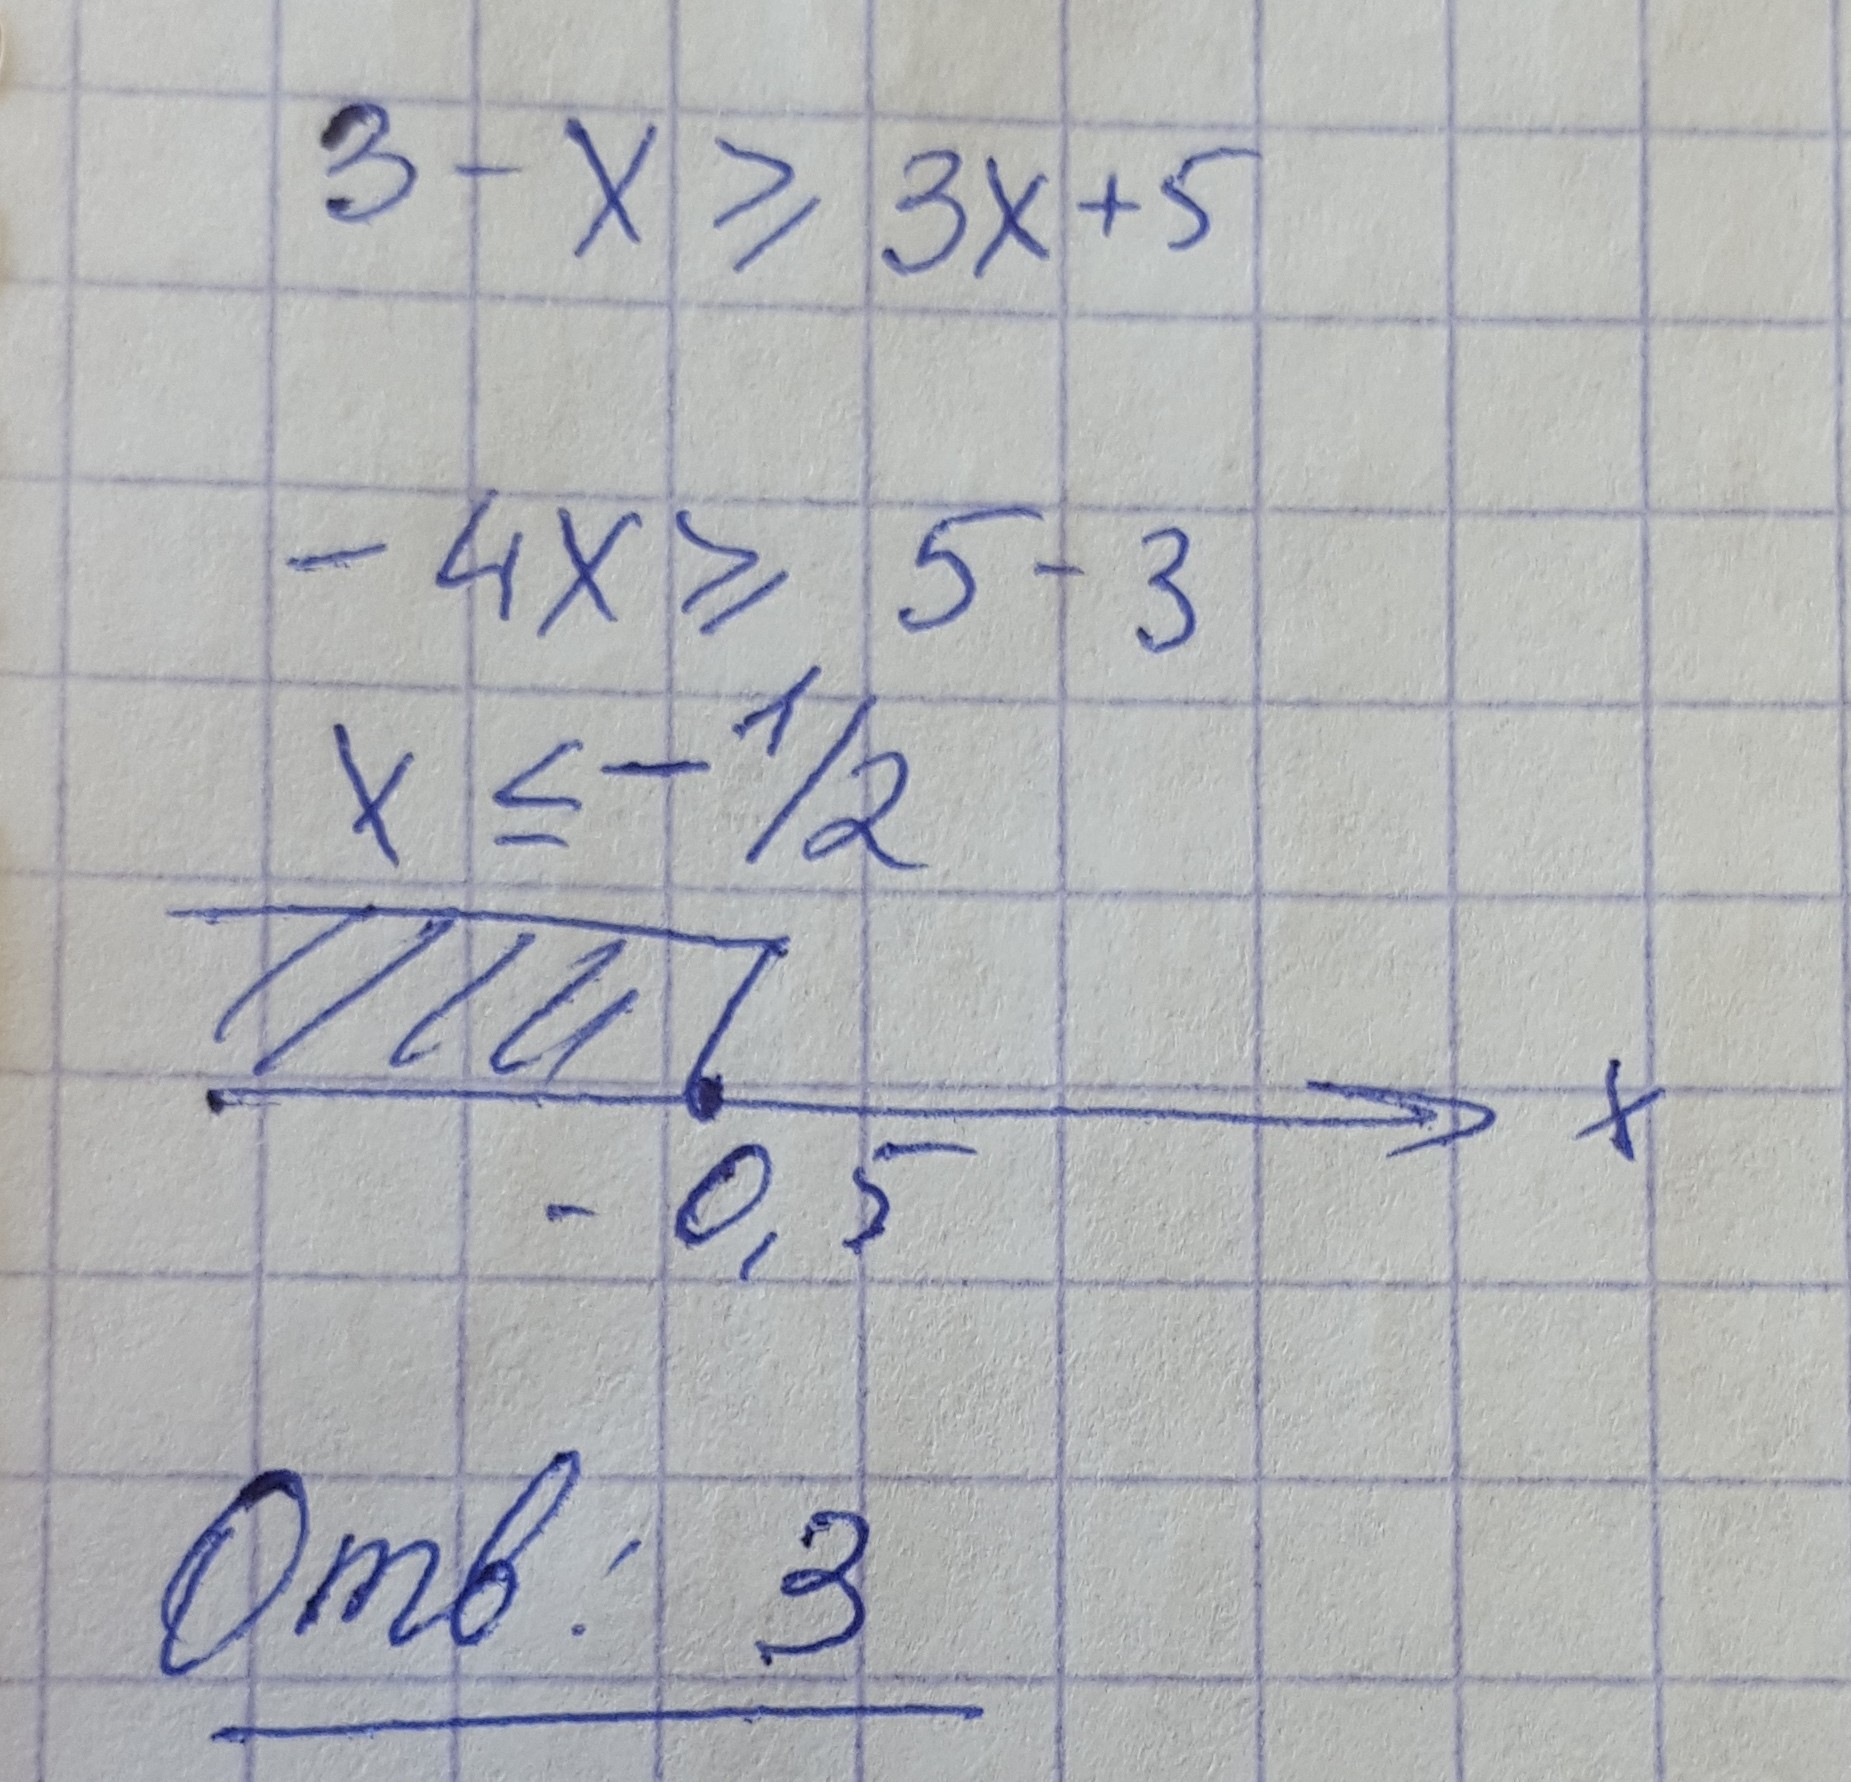 3 - x ⩾ 3x + 5
- 4x ⩾ 5 - 3
x ≤ - 1/2
x
- 0,5
Отв: 3